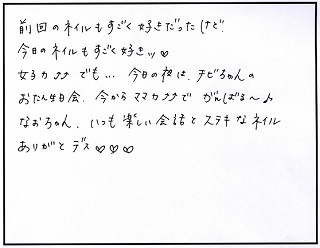 前回のネイルもすごく好きだったけど、
今日のネイルもすごく好きッ♡
女子力↑↑ でも… 今日の夜は、チビちゃんの
おたん生日会、今からママ力↑↑で がんばる〜♪
なおちゃん、いつも楽しい会話とステキなネイル
ありがとデス♡♡♡